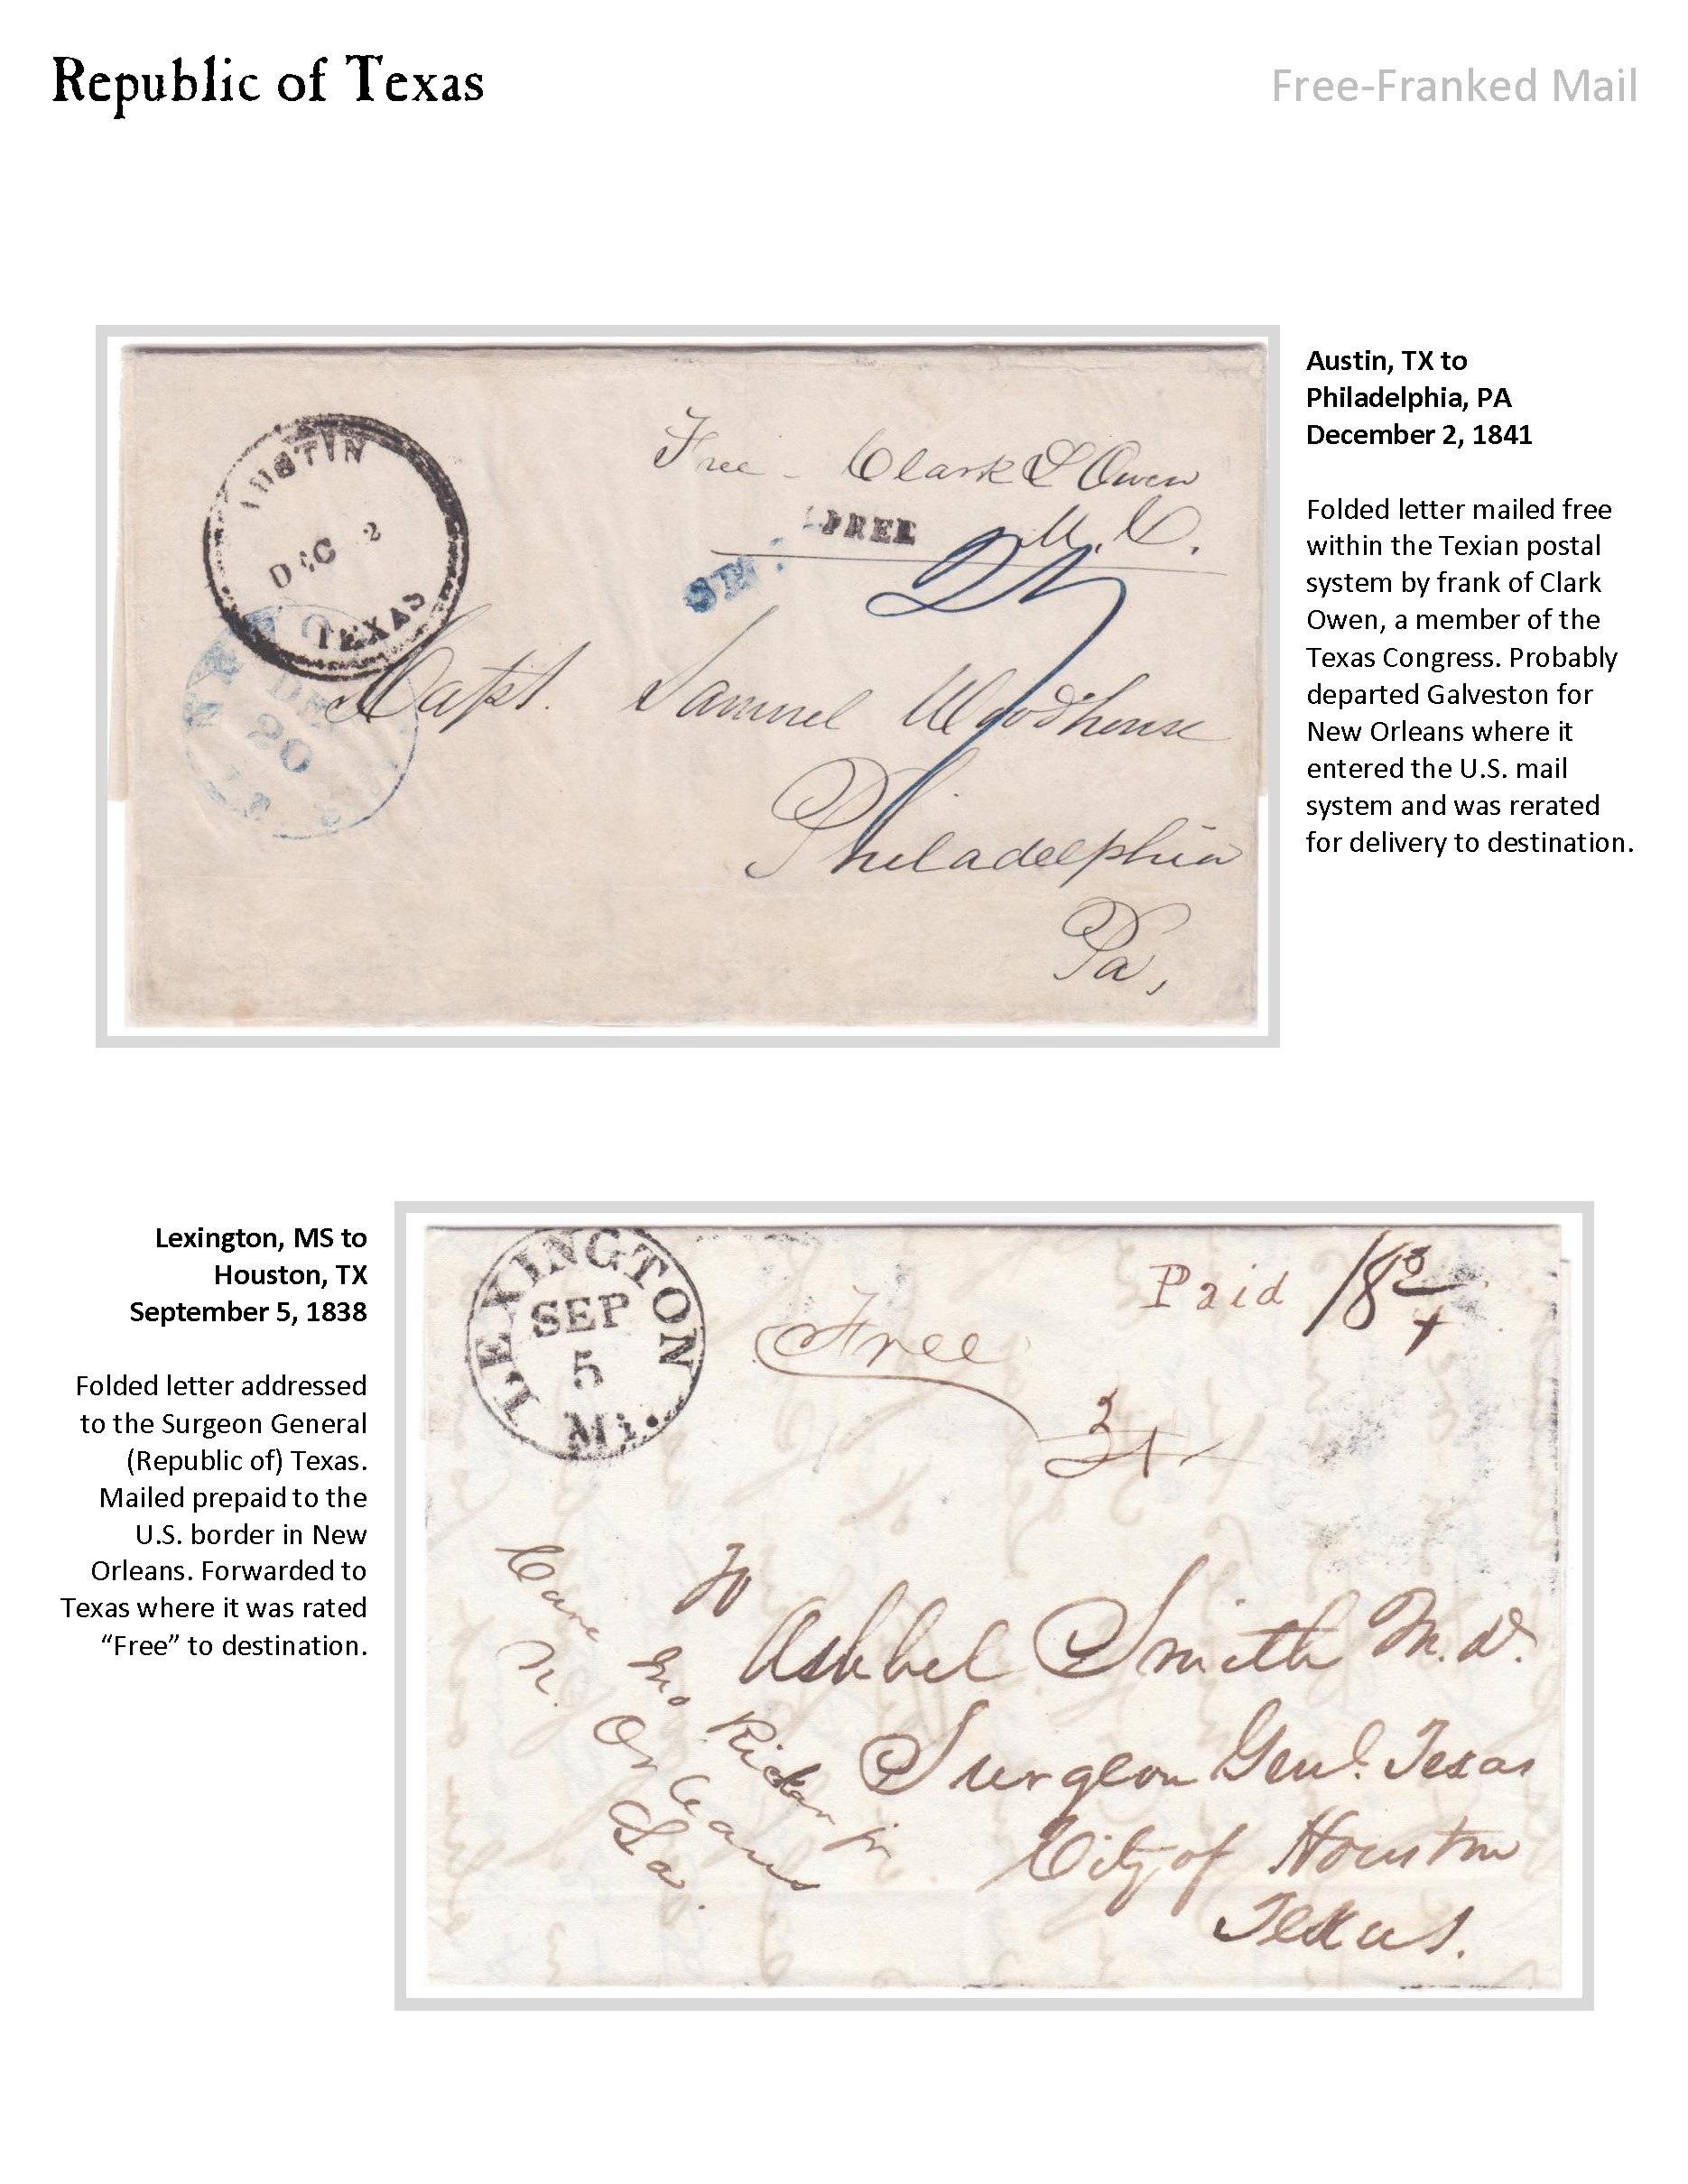 Republic of Texas
Free-Franked Mail
Austin, TX to
Philadelphia, PA
December 2, 1841
Folded letter mailed free
within the Texian postal
system by frank of Clark
Owen, a member of the
Texas Congress. Probably
departed Galveston for
New Orleans where it
entered the U.S. mail
system and was rerated
for delivery to destination.
AUSTIN
DEC 2
TEXAS
Free - Clark L Owen
M.C.
FREE
DEC
20
Capt. Samuel Woodhouse
Philadelphia
Pa,
Lexington, MS to
Houston, TX
September 5, 1838
Folded letter addressed
to the Surgeon General
(Republic of) Texas.
Mailed prepaid to the
U.S. border in New
Orleans. Forwarded to
Texas where it was rated
“Free” to destination.
LEXINGTON
SEP
5
Mi.
Free
Paid 18 3/4
To
Ashbel Smith M.D.
Surgeon Genl. Texas
City of Houston
Texas.
Care
N. Orleans
La.